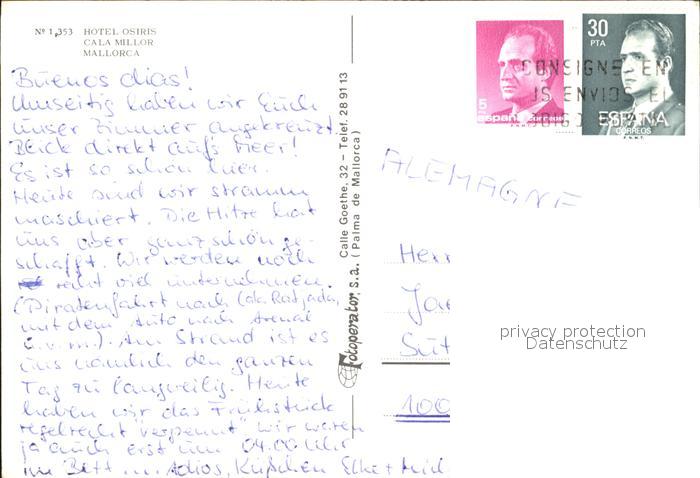 Nº 1,353 HOTEL OSIRIS
CALA MILLOR
MALLORCA
Buenos dias!
Umseitig haben wir Euch
unser Zimmer angekreuzt.
Blick direkt auf's Meer!
Es ist so schön hier.
Heute sind wir stramm
maschiert. Die Hitze hat
uns aber ganz schön ge-
schafft. Wir werden noch
recht viel unternehmen.
(Piratenfahrt nach Cala Ratjada,
mit dem Auto nach Arenal
u.v.m.). Am Strand ist es
uns nämlich den ganzen
Tag zu langweilig. Heute
haben wir das Frühstück
regelrecht "verpennt" wir waren
ja auch erst um 04.00 Uhr
im Bett ... Adios, Küßchen Elke +
Fotoperator, s.a.
Calle Goethe, 32 – Telef. 28 91 13
(Palma de Mallorca)
5
españa correos
F.N.M.T.
30
PTA
ESPAÑA
CORREOS
F.N.M.T.
CONSIGNE EN
US ENVIOS EL
ALEMAGNE
Herr
100
privacy protection
Datenschutz